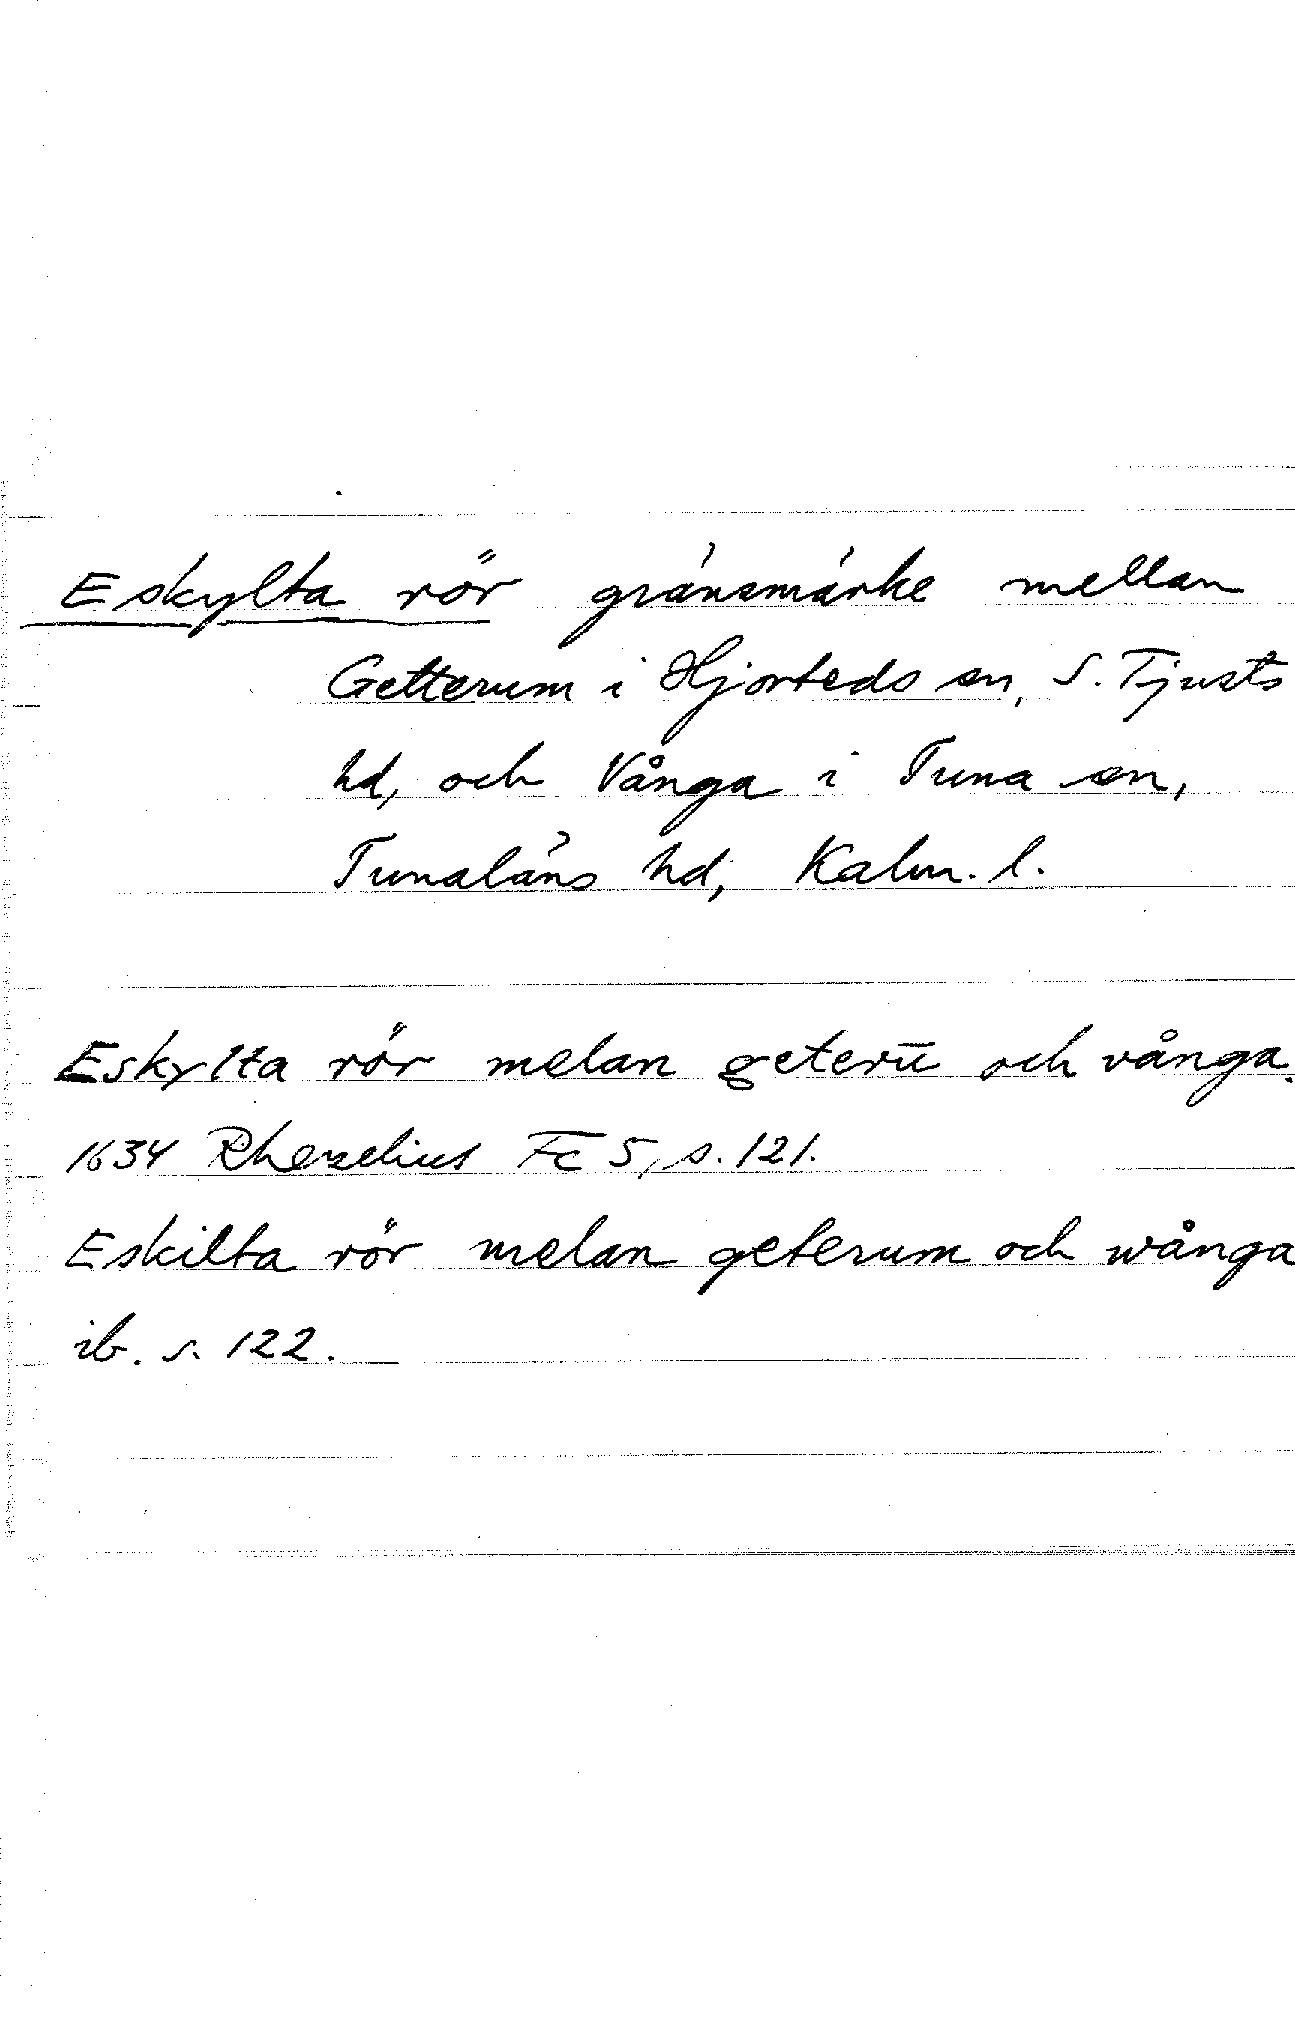 Eskylta rör gränsmärke mellan
Getterum i Hjorteds sn, S. Tjusts
hd, och Vånga i Tuna sn,
Tunaläns hd, Kalm. l.
Eskylta rör melan geterū och vånga.
1634 Rhezelius Fc 5, s. 121.
Eskilta rör melan geterum och wånga
ib. s. 122.